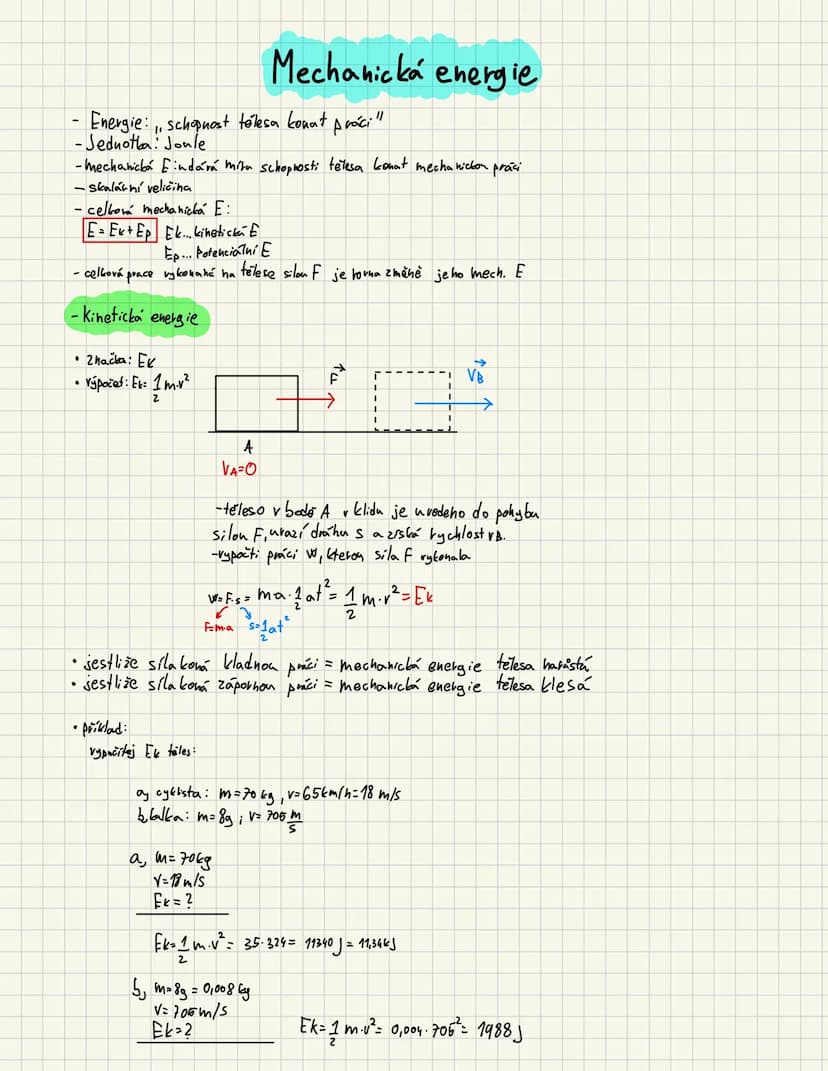 Mechanická energie
- Energie: „schopnost tělesa konat práci"
- Jednotka: Joule
- mechanická E: udává míru schopnosti tělesa konat mechanickou práci
- skalární veličina
- celková mechanická E:
E = Ek + Ep Ek... kinetická E
Ep... Potenciální E
- celková práce vykonaná na tělese silou F je rovna změně jeho mech. E
- Kinetická energie
• značka: Ek
• výpočet: Ek = 1/2 m·v²
F
VB
A
VA=0
- těleso v bodě A v klidu je uvedeno do pohybu
silou F, urazí dráhu s a získá rychlost vB.
- vypočti práci W, kterou síla F vykonala
W=F·s = ma·1/2 at² = 1/2 m·v² = Ek
F=m·a s=1/2 at²
• jestliže síla koná kladnou práci = mechanická energie tělesa narůstá
• jestliže síla koná zápornou práci = mechanická energie tělesa klesá
• příklad:
vypočítej Ek těles:
a, cyklista: m=70 kg, v=65km/h=18 m/s
b, kulka: m=8g, v=705 m/s
a, m=70kg
v=18m/s
Ek=?
Ek=1/2 m·v²= 35·324= 11340 J = 11,34kJ
b, m=8g = 0,008 kg
v=705m/s
Ek=?
Ek=1/2 m·v²= 0,004·705²= 1988 J